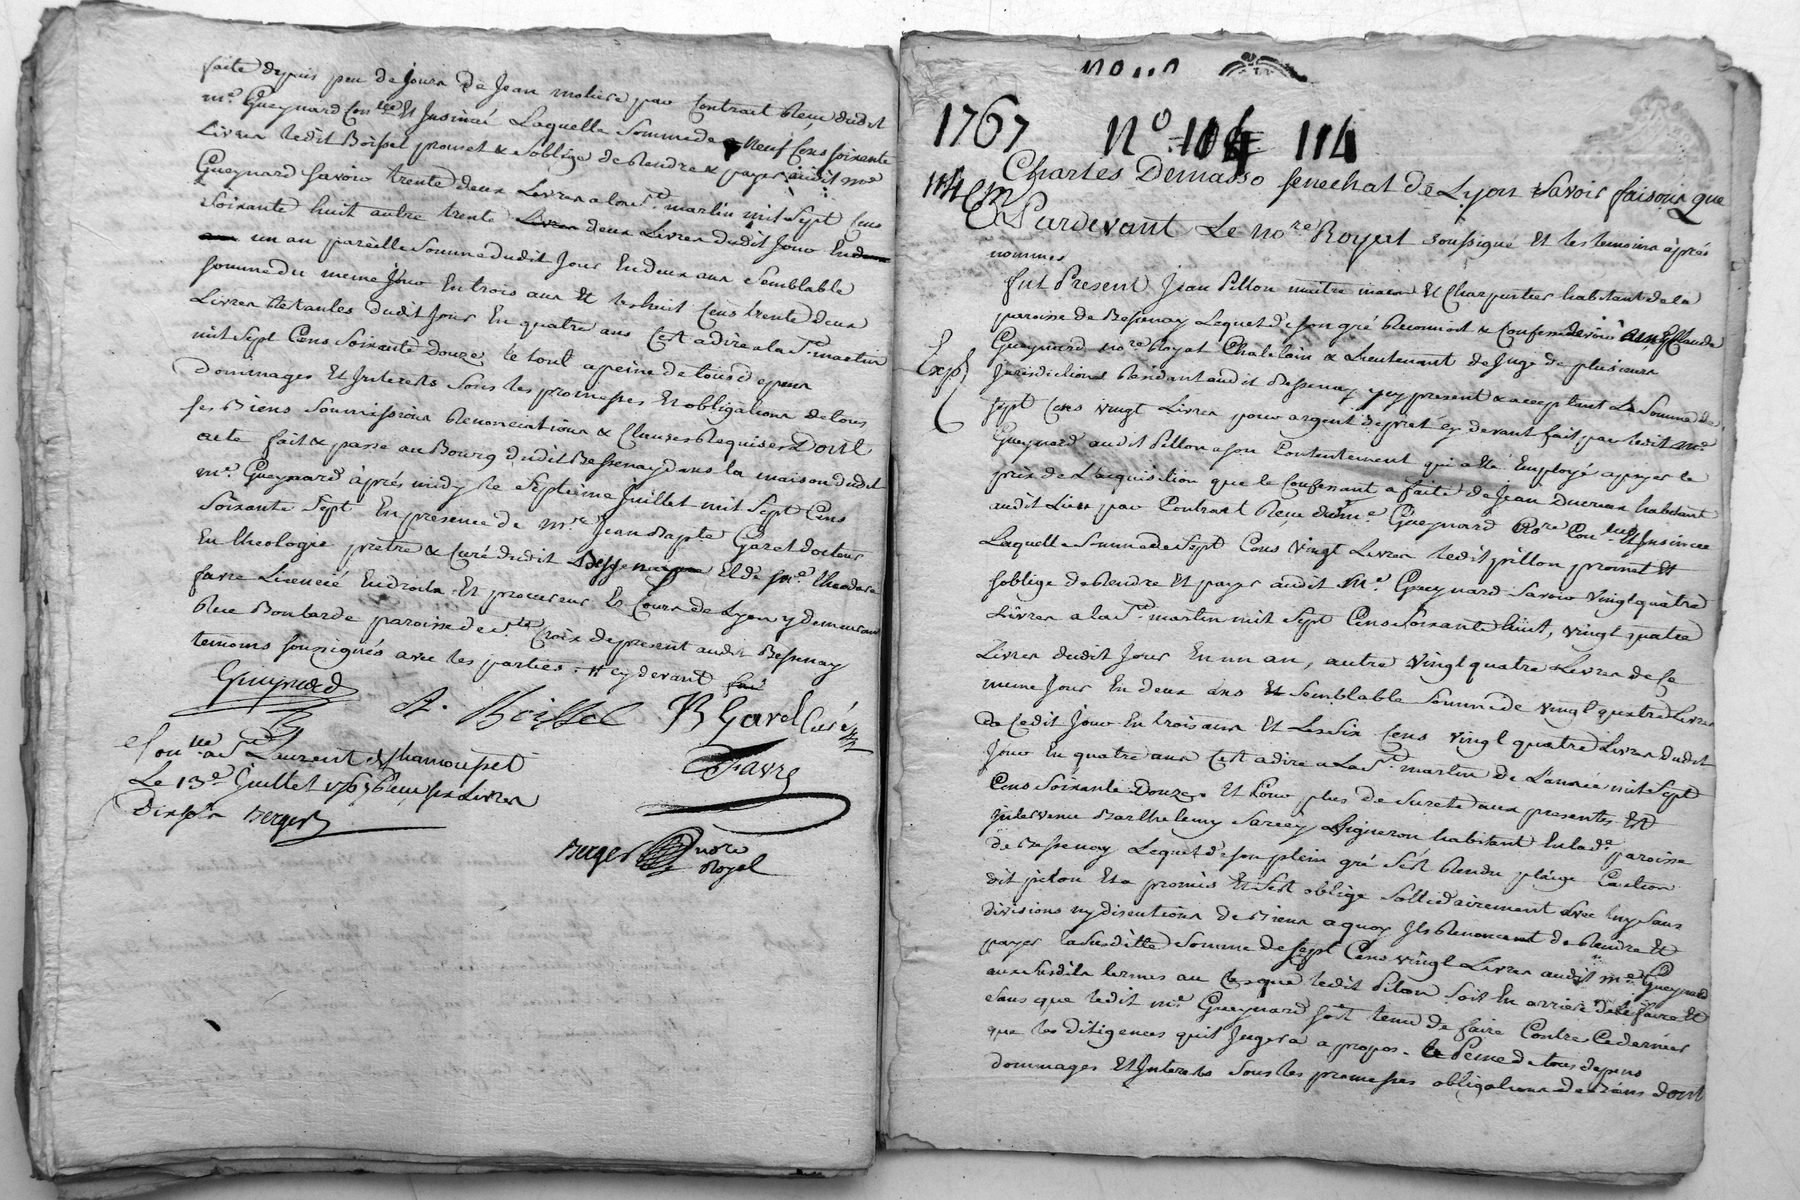 faite depuis peu de jours de Jean moliere par Contrat Reçu dudit
me. Gueynard Con.lle Et Insinué Laquelle Somme de neuf Cens soixante
Livres ledit Boissel promet & soblige de Rendre & payer audit me
Gueynard savoir trente deux Livres a la St. martin mil sept Cens
soixante huit autre trente Livres deux Livres dudit Jour En
un an pareille Somme dudit Jour En deux ans semblable
somme du meme Jour En trois ans Et les huit Cens trente deux
Livres Restantes dudit Jour En quatre ans C'est a dire a la St. martin
mil sept Cens soixante Douze, le tout a peine de tous depens
dommages Et Interets sous les promesses Et obligations de tous
ses Biens soumissions Renonciations & Clauses Requises Dont
acte fait & passé au Bourg dudit Bessenay dans la maison dudit
me. Gueynard après midy le septieme Juillet mil sept Cens
soixante sept En presence de mre. Jean Bapte Garel docteur
En theologie pretre & Curé dudit Bessenay Et de me. theodore
favre Licencié En droits Et procureur Es Cours de Lyon y demeurant
Rue Bombarde paroisse de ste. Croix de present audit Bessenay
temoins soussignés avec les parties. # cy devant
Gueynard
A. Boissel B Garel Curé
Con.lle a St Laurent de Chamousset
Le 13e Juillet 1767 Reçu six Livres
Dix sols Berger
Favre
Berger nore
Royal
1767 No. 104 114
114 Charles Demasso senechal de Lyon savoir faisons que
Pardevant Le Nore Royal soussigné Et les temoins après
nommés
fut Present Jean Pillon maitre maçon Et Charpentier habitant de la
paroisse de Bessenay Lequel de son gré Reconnoit & Confesse devoir a me Claude
Gueynard nore Royal Chatelain & Lieutenant de Juge de plusieurs
Exp.
Jurisdictions Residant audit Bessenay icy present & acceptant La Somme de
sept Cens vingt Livres pour argent de pret cy devant fait par ledit me.
Gueynard audit Pillon a son Contentement qui a été Employé a payer le
prix de L'acquisition que le Confessant a faite de Jean Ducreux habitant
audit Lieu par Contrat Reçu dudit me. Gueynard nore Con.llé Et Insinué
Laquelle Somme de sept Cens vingt Livres ledit pillon promet Et
soblige de Rendre Et payer audit me. Gueynard savoir vingt quatre
Livres a la St. martin mil sept Cens soixante huit, vingt quatre
Livres dudit Jour En un an, autre vingt quatre Livres de Ce
meme Jour En deux ans Et semblable Somme de vingt quatre Livres
de Cedit Jour En trois ans Et Les six Cens vingt quatre Livres dudit
Jour En quatre ans C'est a dire a La St. martin de L'année mil sept
Cens soixante Douze. Et Pour plus de sureté aux presentes Est
Intervenu Barthelemy Sarcey vigneron habitant En lad. paroisse
de Bessenay Lequel de son plein gré s'est Rendu pleige Caution
dudit pillon Et a promis Et s'est obligé sollidairement avec luy sans
divisions ny discutions de Biens a quoy Ils Renoncent de Rendre Et
payer la susditte Somme de sept Cens vingt Livres audit me. Gueynard
aux susdits termes au Cas que ledit Pillon soit En arriere de le faire Et
sans que ledit me. Gueynard soit tenu de faire Contre Ce dernier
que les diligences qu'il Jugera a propos. a Peine de tous depens
dommages Et Interets sous les promesses obligations de Biens dont